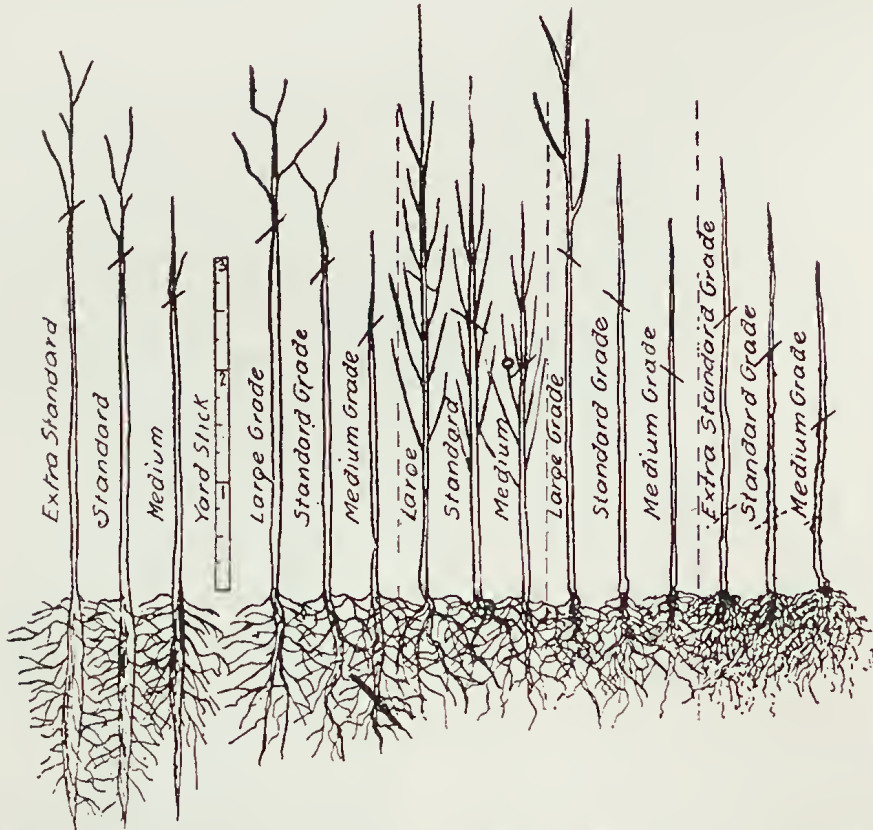 Extra Standard
Standard
Medium
Yard Stick
3
2
1
Large Grade
Standard Grade
Medium Grade
Large
Standard
Medium
Large Grade
Standard Grade
Medium Grade
Extra Standard Grade
Standard Grade
Medium Grade